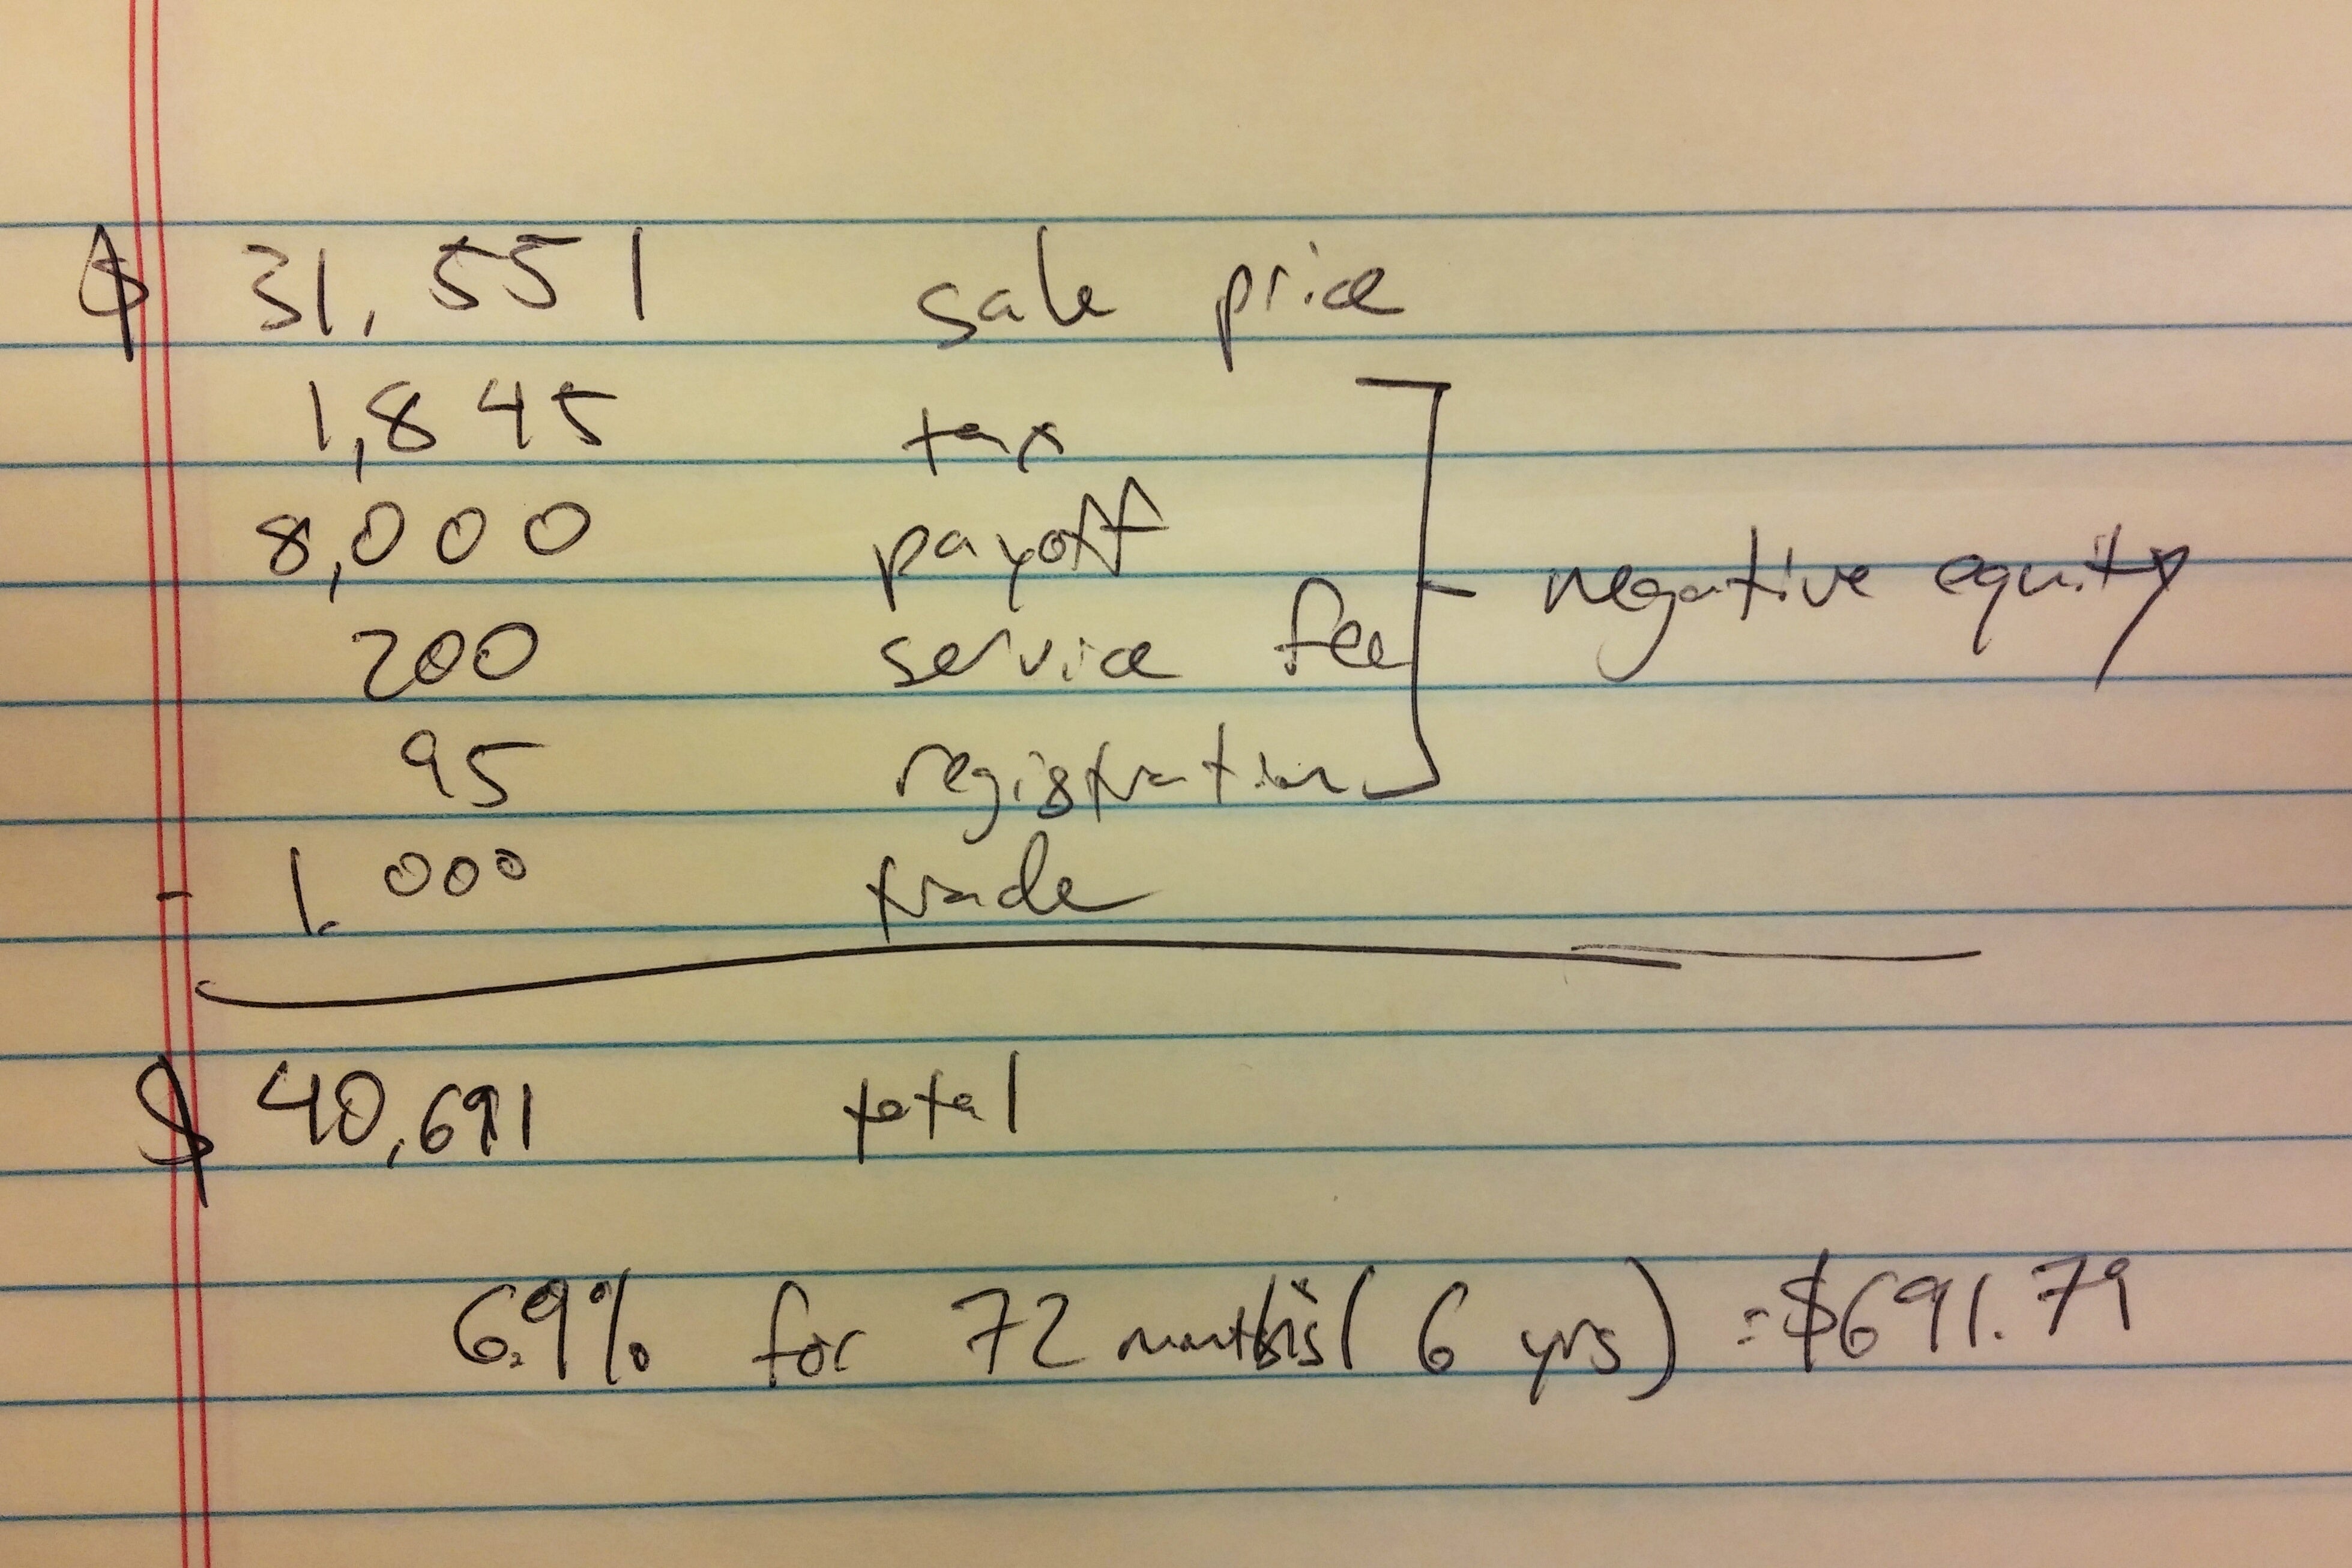 $ 31,551 sale price
1,845 tax
8,000 payoff
200 service fee
negative equity
95 registration
- 1.000 trade
$ 40,691 total
6.9% for 72 months (6 yrs) = $691.79